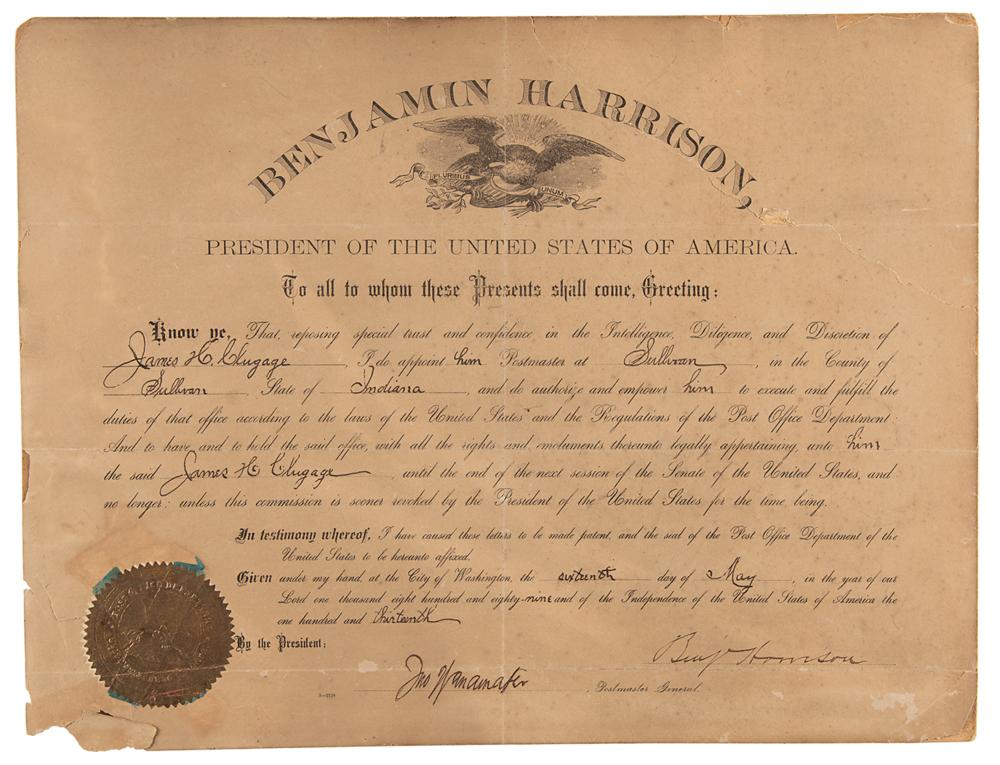 BENJAMIN HARRISON,
E PLURIBUS UNUM
PRESIDENT OF THE UNITED STATES OF AMERICA.
To all to whom these Presents shall come, Greeting:
Know ye, That, reposing special trust and confidence in the Intelligence, Diligence, and Discretion of
James H. Clugage, I do appoint him Postmaster at Sullivan, in the County of
Sullivan State of Indiana, and do authorize and empower him to execute and fulfill the
duties of that office according to the laws of the United States and the Regulations of the Post Office Department:
And to have and to hold the said office, with all the rights and emoluments thereunto legally appertaining, unto him
the said James H. Clugage until the end of the next session of the Senate of the United States, and
no longer: unless this commission is sooner revoked by the President of the United States for the time being.
In testimony whereof, I have caused these letters to be made patent, and the seal of the Post Office Department of the
United States to be hereunto affixed.
Given under my hand, at the City of Washington, the sixteenth day of May, in the year of our
Lord one thousand eight hundred and eighty-nine and of the Independence of the United States of America the
one hundred and thirteenth
By the President:
Benj Harrison
Jno Wanamaker, Postmaster General.